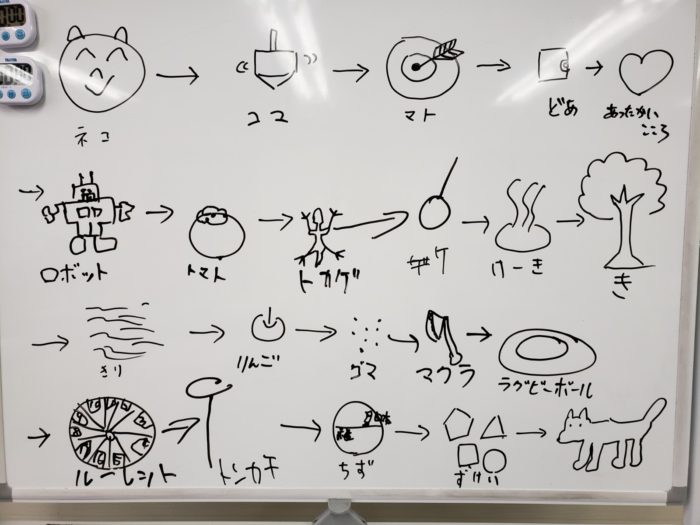 ネコ
ココ
マト
どあ
あったかい
こころ
ロボット
トマト
トカゲ
けーき
き
きり
りんご
ゴマ
マクラ
ラグビーボール
ルーレット
トンカチ
ちず
ずけい